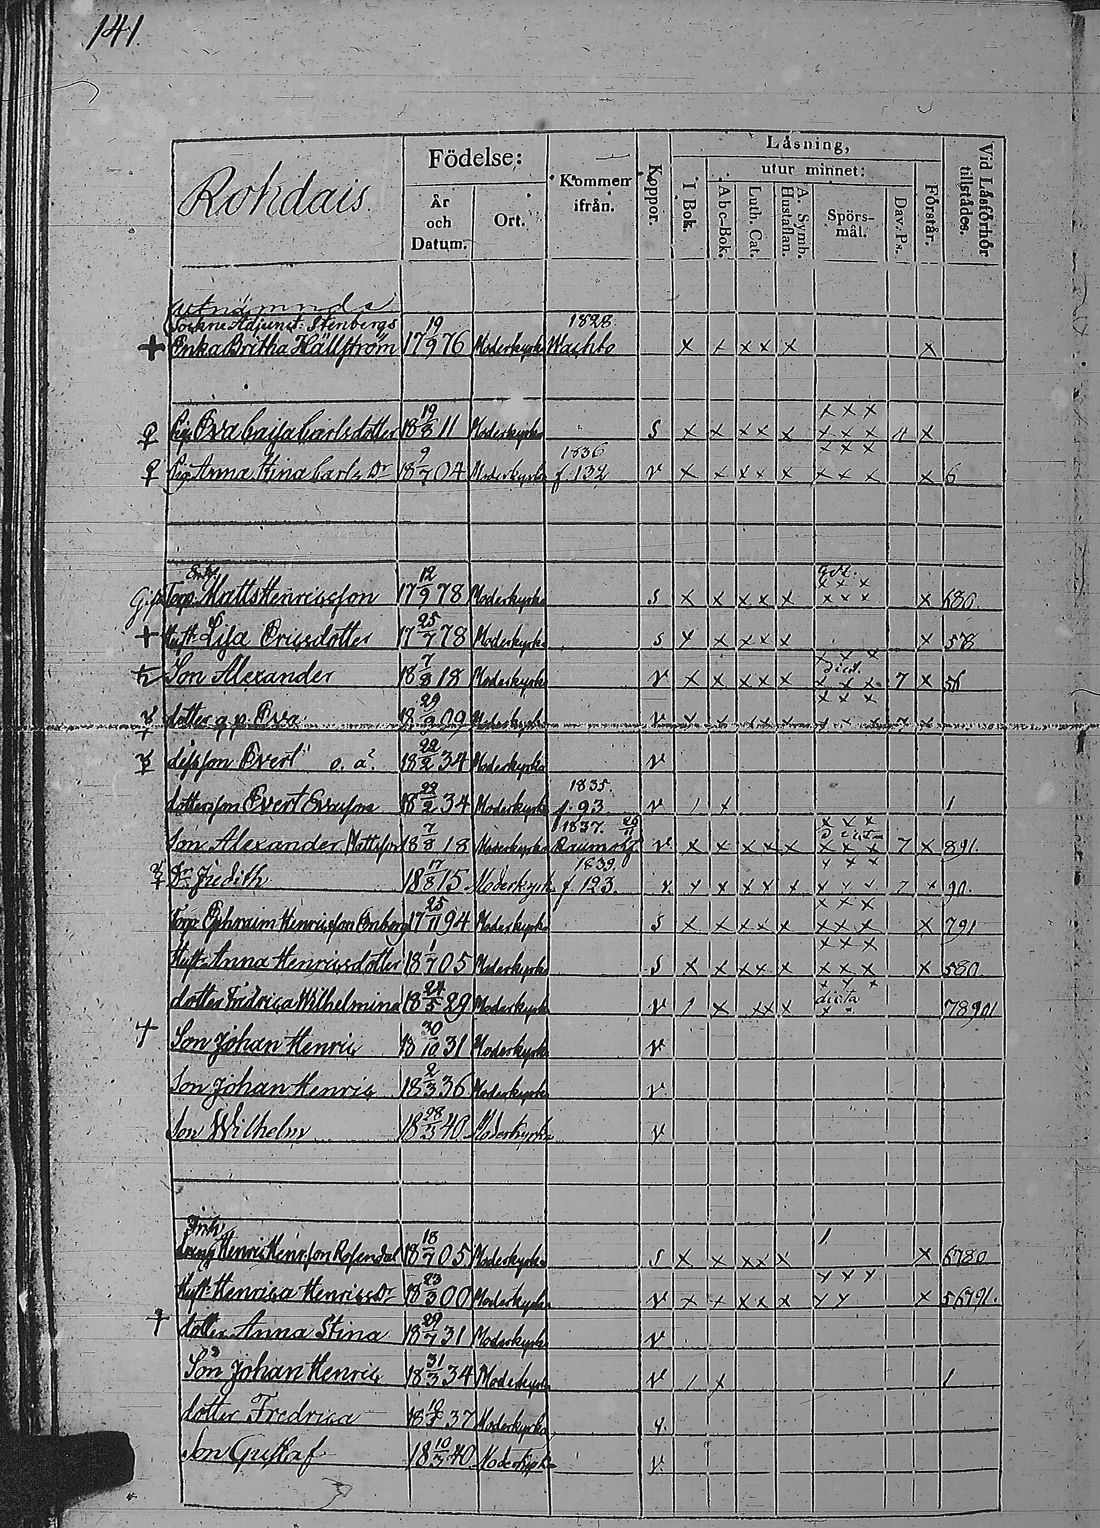 141.
Rokdais.
Födelse:
År och Datum.
Ort.
Kommen ifrån.
Koppor.
Läsning,
I Bok.
utur minnet:
Abc-Bok.
Luth. Cat.
A. Symb. Hustaflan.
Spörs-mål.
Dav. Ps.
Förstår.
Vid Läsförhör tillstädes.
Sockne Adjunct. Stenbergs 19 1828.
+ Erika Britha Hällström 17 9 76 Moderkyrko x x xx x x
Pig. Eva Cajsa Carlsdotter 18 19/8 11 Moderkyrko s x x xx x xxx xxx x
Pig. Anna Stina Carls Dr 18 9/7 04 Moderkyrko 1836 f. 132 v x x xx x xxx xxx x 6
Torp. Matts Henricsson 17 12/9 78 Moderkyrko s x x xx x xxx xxx x 680
+ Hust. Lisa Ericsdotter 17 25/7 78 Moderkyrko s x x xx x x 578
Son Alexander 18 7/8 18 Moderkyrko v x x xx x xxx xxx 7 x 56
dotter Eva 18 29/9 09 Moderkyrko v x x xx x xxx xxx 7 x
Evert o. ä. 18 22/2 34 Moderkyrko v
dotterson Evert Evasson 18 22/2 34 Moderkyrko 1835. f. 93 v / x 1
Son Alexander Mattsson 18 7/8 18 Moderkyrko 1837. 29/11 Raumo v x x xx x xxx xxx 7 x 891.
Dr Fredith 18 17/8 15 Moderkyrk 1839. f 123. v x x xx x xxx xxx 7 x 90.
Torp Ephraim Henricsson 17 25/11 94 Moderkyrko s x x xx x xxx xxx x 791
Hust. Anna Henricsdotter 18 1/7 05 Moderkyrko s x x xx x xxx xxx x 580.
dotter Fredrica Wilhelmina 18 24/5 29 Moderkyrko v / x xxx xxx dicta 78901
+ Son Johan Henric 18 30/10 31 Moderkyrko v
Son Johan Henric 18 2/3 36 Moderkyrko v
Son Wilhelm 18 28/5 40 Moderkyrko v
Henric Henrsson Rosendal 18 18/7 05 Moderkyrko s x x xx x x 6780
Hust. Henrica Henrics Dr 18 23/3 00 Moderkyrko v x x xx x xxx xx x 56791.
+ dotter Anna Stina 18 29/7 31 Moderkyrko v
Son Johan Henric 18 31/3 34 Moderkyrko v / x 1
dotter Fredrica 18 37 Moderkyrko v.
Son Gustaf 18 10/3 40 Moderkyrko v.